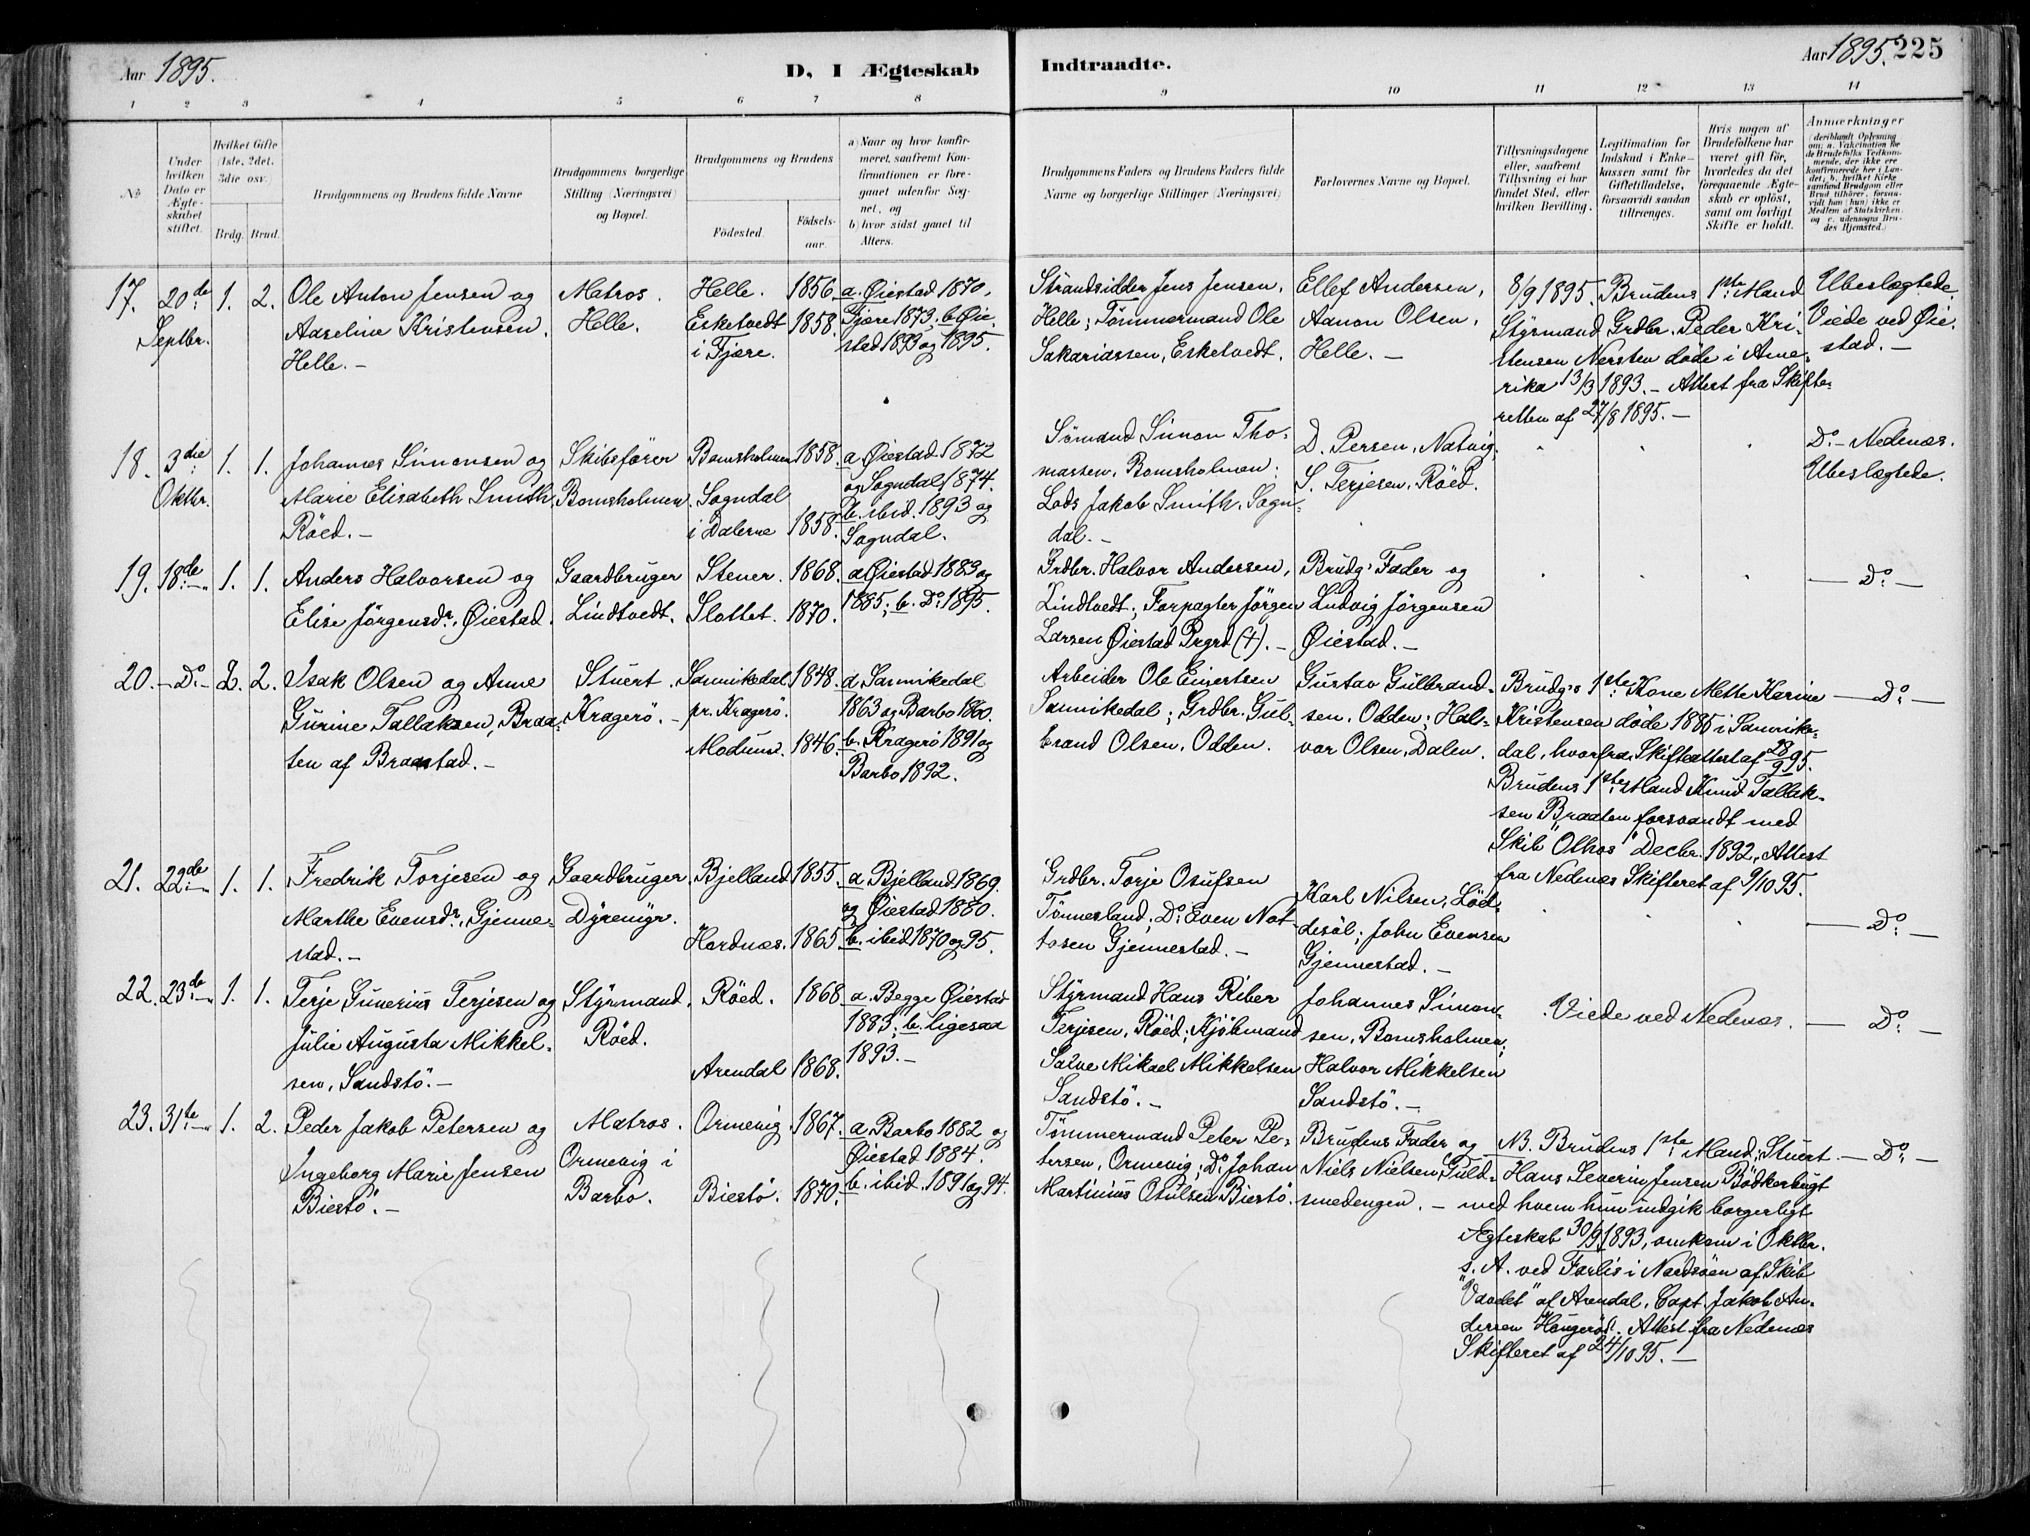 Aar 1895.
D, I Ægteskab
Indtraadte.
Aar 1895. 225
1 2 3 4 5 6 7 8 9 10 11 12 13 14
No
Under hvilken Dato er Ægteskabet stiftet.
Hvilket Gifte (1ste, 2det, 3die osv.)
Brdg. Brud.
Brudgommens og Brudens fulde Navne
Brudgommens borgerlige Stilling (Næringsvei) og Bopæl.
Brudgommens og Brudens
Födested.
Födsels-aar.
a) Naar og hvor konfirmeret, saafremt Konfirmationen er foregaaet udenfor Sognet, og
b) hvor sidst gaaet til Alters.
Brudgommens Faders og Brudens Faders fulde Navne og borgerlige Stillinger (Næringsvei)
Forlovernes Navne og Bopæl.
Tillysningsdagene eller, saafremt Tillysning ei har fundet Sted, efter hvilken Bevilling.
Legitimation for Indskud i Enkekassen samt for Giftetilladelse, forsaavidt saadan tiltrænges.
Hvis nogen af Brudefolkene har været gift för, hvorledes da det foregaaende Ægteskab er oplöst, samt om lovligt Skifte er holdt.
Anmærkninger
(deriblandt Oplysning om: a. Vakcination for de Brudefolks Vedkommende, der ikke ere konfirmerede her i Landet; b. hvilket Kirkesamfund Brudgom eller Brud tilhörer, forsaavidt han (hun) ikke er Medlem af Statskirken, og c. udensogns Brudes Hjemsted.)
17. 20de Septbr. 1. 2.
Ole Anton Jensen og
Aaseline Kristensen.
Helle. –
Matros.
Helle.
Helle. 1856.
Esketvedt 1858.
i Fjære.
a. Øiestad 1870.
Fjære 1873; b. Øie-
stad 1893 og 1895.
Strandsidder Jens Jensen,
Helle; Tømmermand Ole
Sakariassen, Esketvedt.
Ellef Andersen,
Aanon Olsen,
Helle. –
8/9 1895. Brudens 1ste Mand
Styrmand Grdbr. Peder Kri-
stensen Nersten døde i Ame-
rika 13/3 1893. – Attest fra Skifte-
retten af 27/8 1895. –
Ubeslægtede.
Viede ved Øie-
stad. –
18. 3die Oktbr. 1. 1.
Johannes Simonsen og
Marie Elisabeth Smith,
Röed. –
Skibsfører
Bomsholmen.
Bomsholmen 1858.
Sogndal
i Dalerne 1858.
a. Øiestad 1872
og Sogndal 1874.
b. ibid. 1893 og
Sogndal.
Sømand Simon Tho-
massen, Bomsholmen;
Lods Jakob Smith, Sogn-
dal. –
D. Persen, Natvig,
S. Terjesen, Röed.
Do – Nedenæs.
Ubeslægtede.
19. 18de – 1. 1.
Anders Halvorsen og
Elise Jörgensdr. Øiestad.
Gaardbruger
Lindtvedt.
Stener. 1868.
Slottet. 1870.
a Øiestad 1883 og
1885; b. Do 1895.
Grdbr. Halvor Andersen,
Lindtvedt; Forpagter Jörgen
Larsen Øiestad Prgrd (4). –
Brudg's Fader og
Ludvig Jörgensen
Øiestad. –
– Do –
20. – Do – 2. 2.
Isak Olsen og Anne
Gurine Tallaksen, Braa-
ten af Braastad. –
Stuert.
Kragerö. –
Sannikedal 1848.
pr. Kragerö.
Modums. 1846.
a. Sannikedal
1863 og Barbo 1860.
b. Kragerö 1891 og
Barbo 1892.
Arbeider Ole Einertsen
Sannikedal; Grdbr. Gul-
brand Olsen, Odden.
Gustav Gulbrand-
sen, Odden; Hal-
vor Olsen, Dalen.
Brudg's 1ste Kone Mette Karine
Kristensen døde 1885 i Sannike-
dal, hvorfra Skifteattest af 23/9 95.
Brudens 1ste Mand Knud Tallak-
sen Braaten forsvandt med
Skib "Olhos" Decbr. 1892, Attest
fra Nedenæs Skifteret af 9/10 95.
– Do –
21. 22de – 1. 1.
Fredrik Torjesen og
Marthe Evensdr., Gjenne-
stad. –
Gaardbruger
Dyremyr.
Bjelland 1855.
Hordnæs. 1865.
a. Bjelland 1869.
og Øiestad 1880.
b. ibid 1870 og 95.
Grdbr. Torje Osufsen
Tönnesland; Do Even Not-
tosen Gjennestad. –
Karl Nilsen, Löd-
desöl; John Evensen
Gjennestad. –
– Do –
22. 23de – 1. 1.
Terje Gunerius Terjesen og
Julie Augusta Mikkel-
sen, Sandstö. –
Styrmand.
Röed.
Röed. 1868.
Arendal 1868.
a. Begge Øiestad
1883; b. ligesaa
1893. –
Styrmand Hans Riber
Terjesen, Röed; Kjöbmand
Salve Mikael Mikkelsen
Sandstö. –
Johannes Simon-
sen, Bomsholmen,
Halvor Mikkelsen
Sandstö. –
Viede ved Nedenæs. – Do –
23. 31te – 1. 2.
Peder Jakob Petersen og
Ingeborg Marie Jensen
Biestö. –
Matros.
Ormevig i
Barbo.
Ormevig 1867.
Biestö. 1870.
a. Barbo 1882 og
Øiestad 1884.
b. ibid. 1891 og 94.
Tömmermand Peter Pe-
tersen, Ormevig; Do Johan
Martinius Osulsen Biestö.
Brudens Fader og
Niels Nielsen, Guld-
smedengen. –
NB. Brudens 1ste Mand, Stuert
Hans Severin Jensen Bödkerbugt
med hvem hun indgik borgerligt
Ægteskab 30/9 1893, omkom i Oktbr.
s. A. ved Forlis i Nordsöen af Skib
af Arendal, Capt. Jakob An-
dersen Haugeröd. Attest fra Nedenæs
Skifteret af 24/10 95. –
– Do –